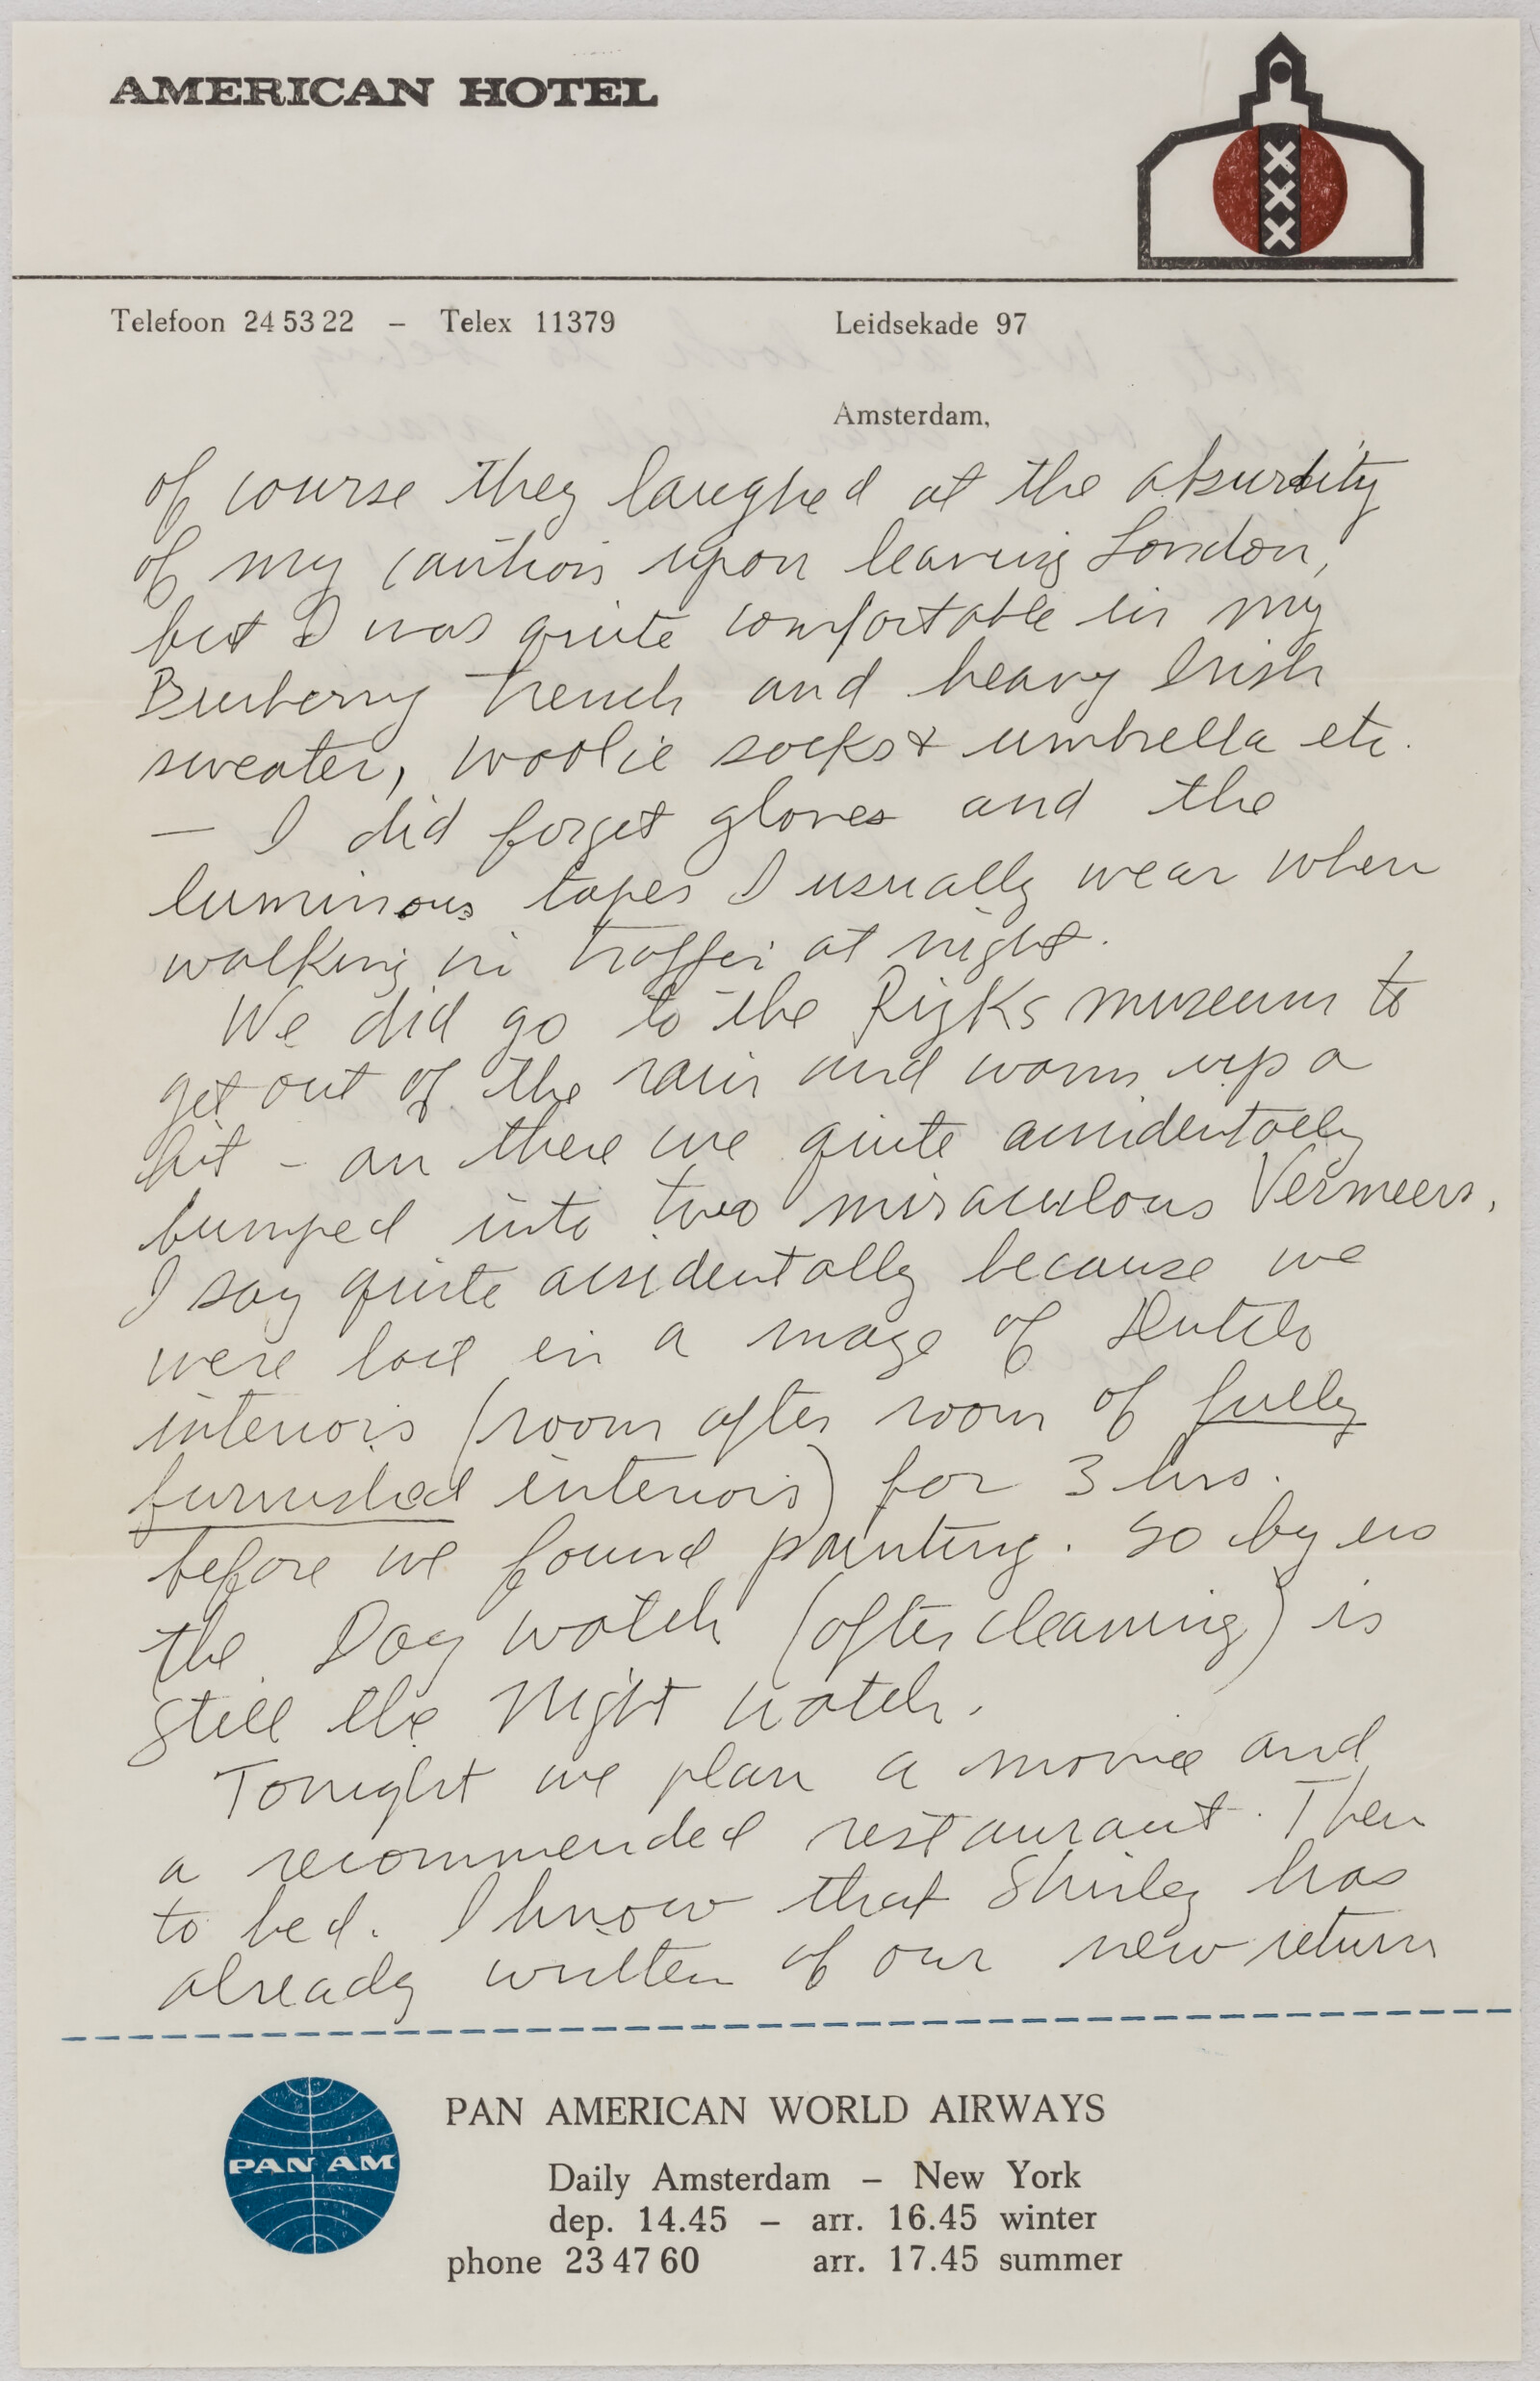 AMERICAN HOTEL
XXX
Telefoon 24 53 22 – Telex 11379 Leidsekade 97
Amsterdam,
of course they laughed at the absurdity
of my caution upon leaving London,
but I was quite comfortable in my
Burberry trench and heavy Irish
sweater, woolie socks & umbrella etc.
— I did forget gloves and the
luminous tapes I usually wear when
walking in traffic at night.
We did go to the Rijks museum to
get out of the rain and warm up a
bit - an there we quite accidentally
bumped into two miraculous Vermeers,
I say quite accidentally because we
were lost in a maze of Dutch
interiors (room after room of fully
furnished interiors) for 3 hrs.
before we found painting. So by us
the Day watch (after cleaning) is
still the Night watch.
Tonight we plan a movie and
a recommended restaurant. Then
to bed. I know that Shirley has
already written of our new return
PAN AM
PAN AMERICAN WORLD AIRWAYS
Daily Amsterdam – New York
dep. 14.45 – arr. 16.45 winter
phone 23 47 60 arr. 17.45 summer